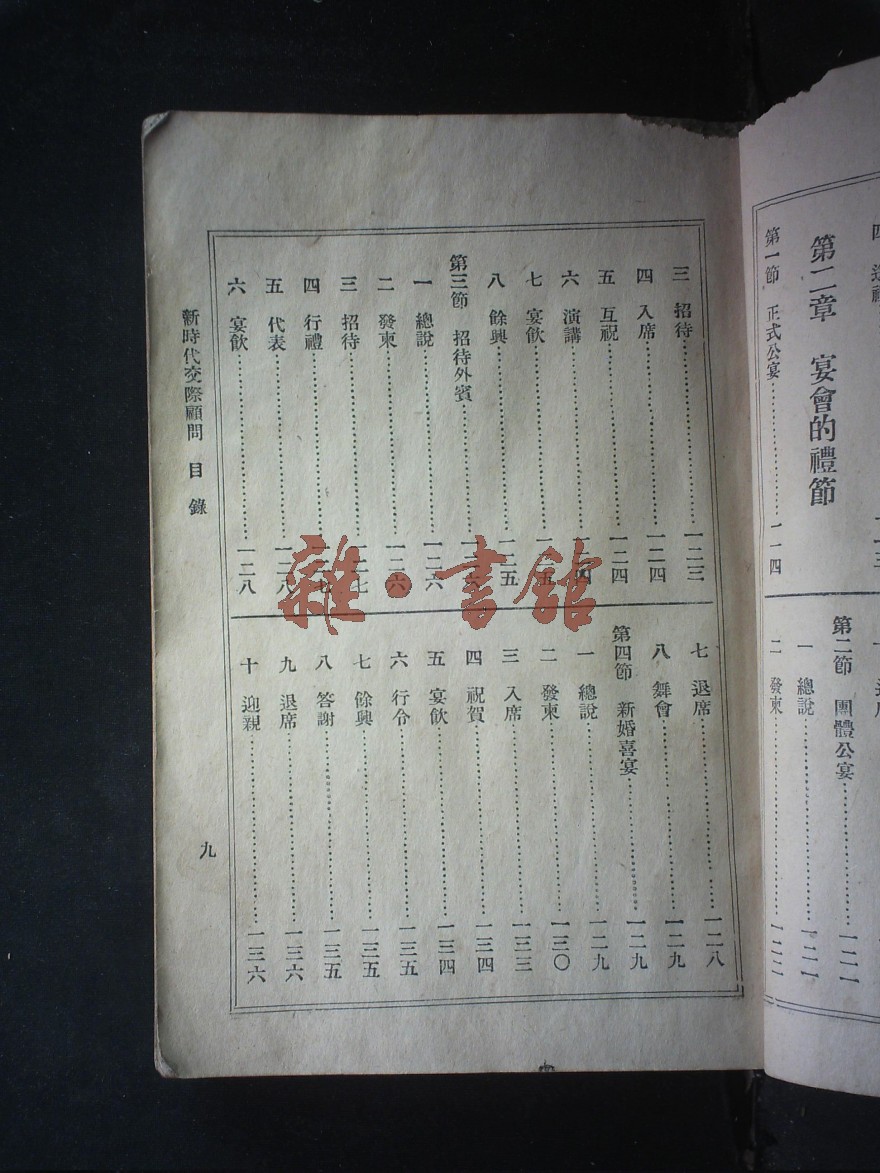 第二章 宴會的禮節
第一節 正式公宴 一一四
第二節 團體公宴 一二一
一 總說 一二一
二 發柬 一二二
三 招待 一二三
四 入席 一二四
五 互祝 一二四
六 演講 一二四
七 宴飲 一二五
八 餘興 一二五
第三節 招待外賓
一 總說 一二六
二 發柬 一二六
三 招待 一二七
四 行禮
五 代表 一二八
六 宴飲 一二八
七 退席 一二八
八 舞會 一二九
第四節 新婚喜宴 一二九
一 總說 一二九
二 發柬 一三〇
三 入席 一三三
四 祝賀 一三四
五 宴飲 一三四
六 行令 一三五
七 餘興 一三五
八 答謝 一三五
九 退席 一三六
十 迎親 一三六
新時代交際顧問 目錄
九
雜·書館